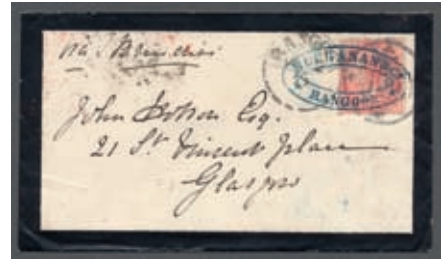 via Brindisi
RANGOON
John Dotson Esq.
21 St Vincent Place
Glasgow